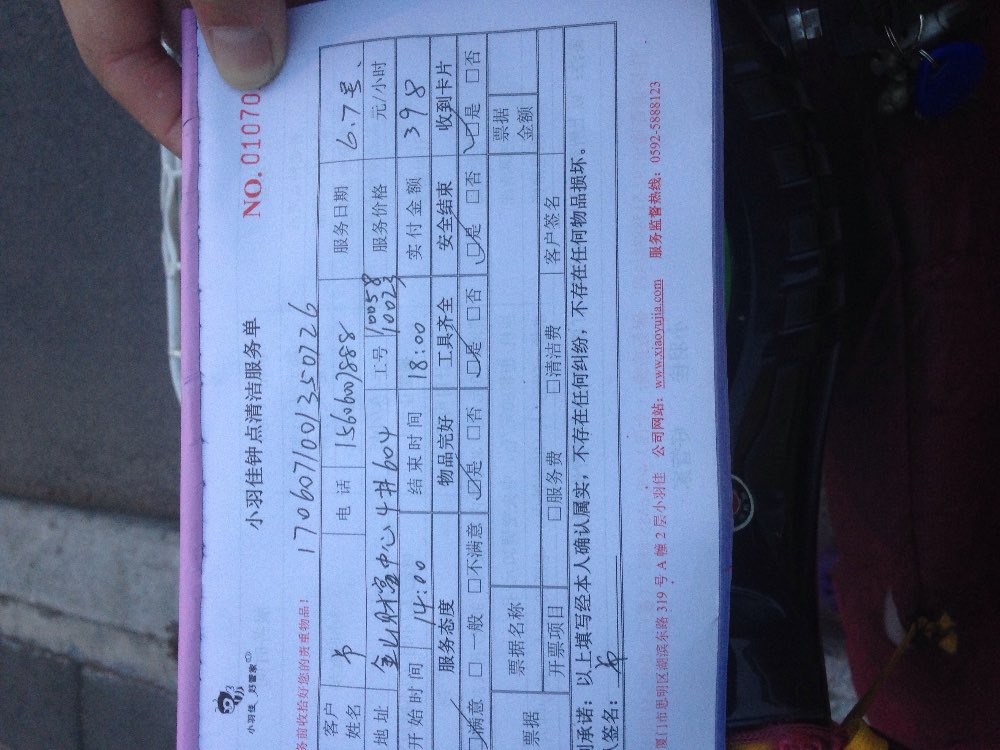 小羽佳 好管家
小羽佳钟点清洁服务单
NO.01070
务前收拾好您的贵重物品!
1706071001350726
客户姓名 电话 15606007888 服务日期 6.7号、
地址 金山财富中心4#604 工号 10058 10023 服务价格 元/小时
开始时间 14:00 结束时间 18:00 实付金额 398
服务态度 物品完好 工具齐全 安全结束 收到卡片
☑满意 □一般 □不满意 ☑是 □否 ☑是 □否 ☑是 □否 ☑是 □否
票据 票据名称 票据金额
开票项目 □服务费 □清洁费 客户签名
承诺:以上填写经本人确认属实,不存在任何纠纷,不存在任何物品损坏。
签名:
厦门市思明区湖滨东路319号A幢2层小羽佳 公司网站:www.xiaoyujia.com 服务监督热线:0592-5888123